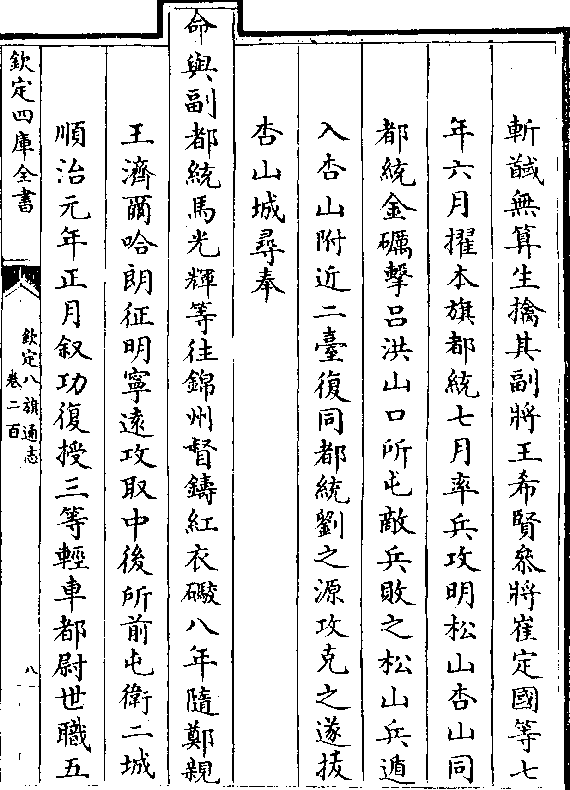 斬馘無算生擒其副將王希賢叅將崔定國等七
年六月擢本旗都統七月率兵攻明松山杏山同
都統金礪擊呂洪山口所屯敵兵敗之松山兵遁
入杏山附近二臺復同都統劉之源攻克之遂拔
杏山城尋奉
命與副都統馬光輝等往錦州督鑄紅衣礮八年隨鄭親
王濟爾哈朗征明寧遠攻取中後所前屯衛二城
順治元年正月叙功復授三等輕車都尉世職五
欽定四庫全書
欽定八旗通志
卷二百
八